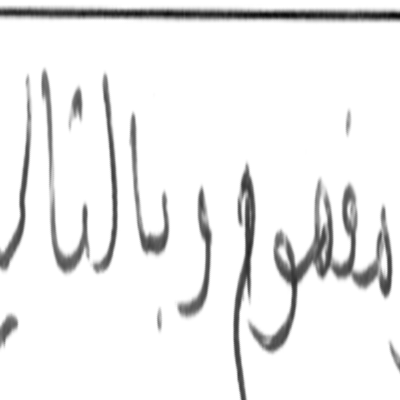 مفهوم وبالتالي